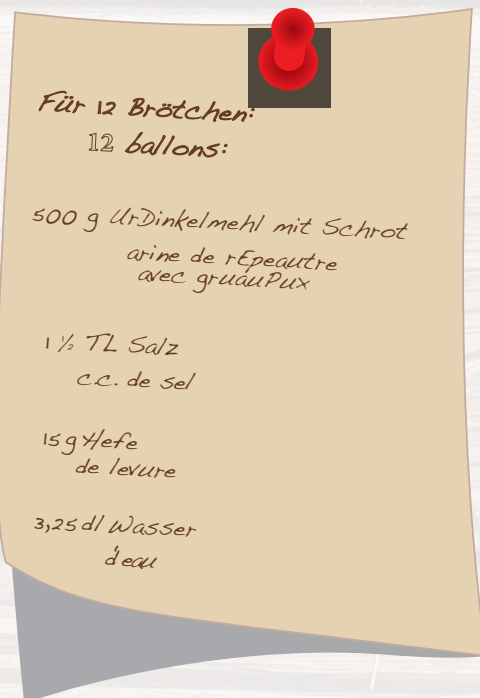 Für 12 Brötchen:
12 ballons:
500 g UrDinkelmehl mit Schrot
arine de rEpeautre
avec gruauPux
1 ½ TL Salz
c.c. de sel
15 g Hefe
de levure
3,25 dl Wasser
d'eau